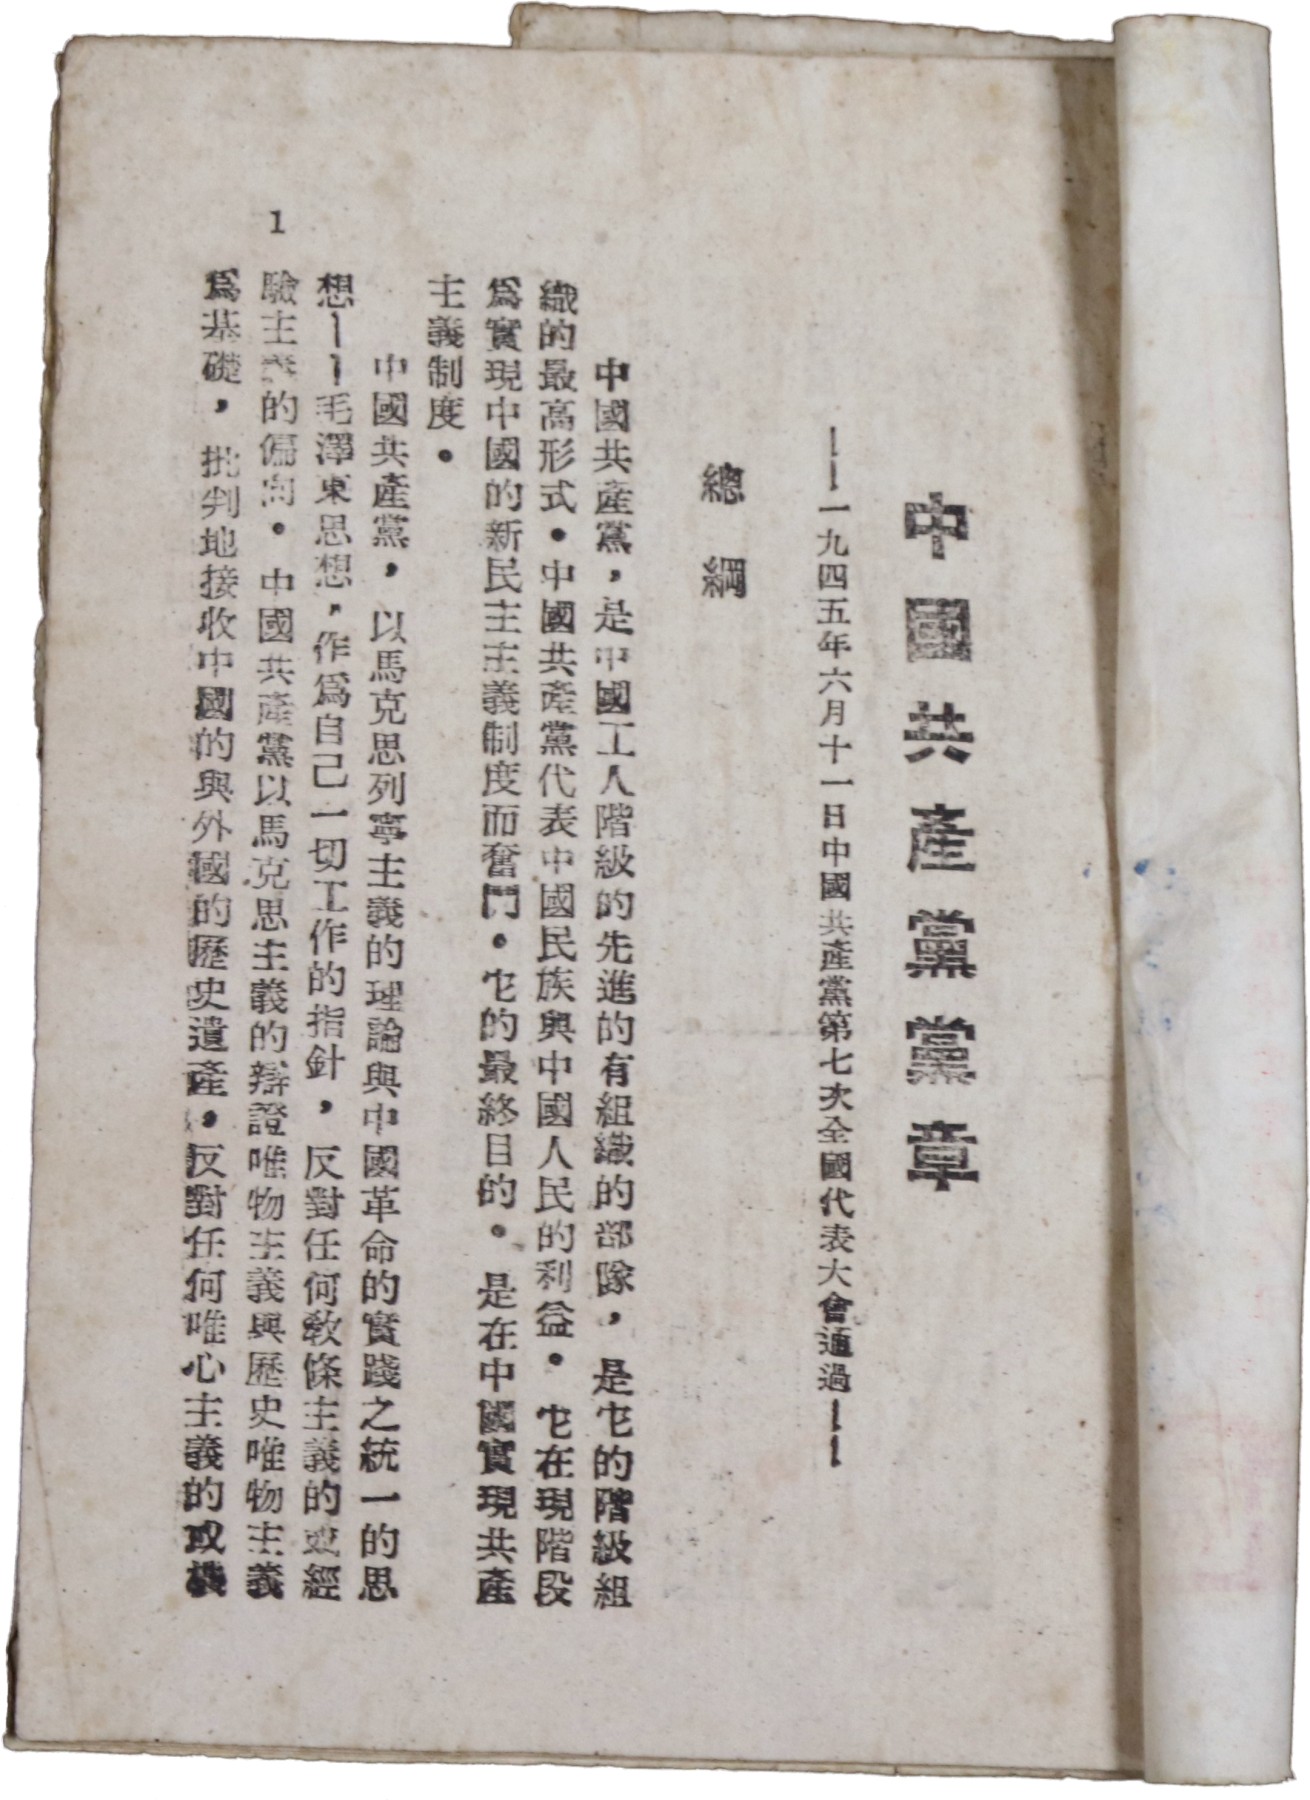 中國共產黨黨章
——一九四五年六月十一日中國共產黨第七次全國代表大會通過——
總綱
中國共產黨，是中國工人階級的先進的有組織的部隊，是它的階級組
織的最高形式。中國共產黨代表中國民族與中國人民的利益。它在現階段
爲實現中國的新民主主義制度而奮鬥。它的最終目的。是在中國實現共產
主義制度。
中國共產黨，以馬克思列寧主義的理論與中國革命的實踐之統一的思
想——毛澤東思想，作爲自己一切工作的指針，反對任何敎條主義的或經
驗主義的偏向。中國共產黨以馬克思主義的辯證唯物主義與歷史唯物主義
爲基礎，批判地接收中國的與外國的歷史遺產，反對任何唯心主義的或機
1